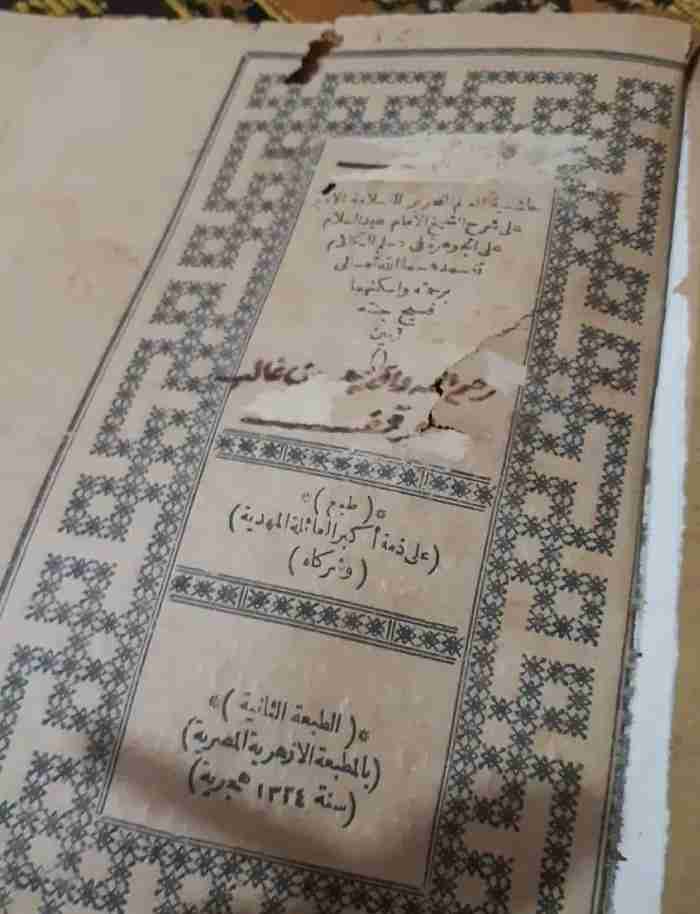 حاشية العلم العلامة الامير
على شرح الشيخ الامام عبد السلام
على الجوهرة فى علم الكلام
تغمدهما الله تعالى
برحمته واسكنهما
فسيح جنته
آمين
غالب
*( طبع )*
(على ذمة أكبر العائلة المهدية)
(وشركاه)
*( الطبعة الثانية )*
(بالمطبعة الازهرية المصرية)
(سنة ١٣٢٤ هجرية)